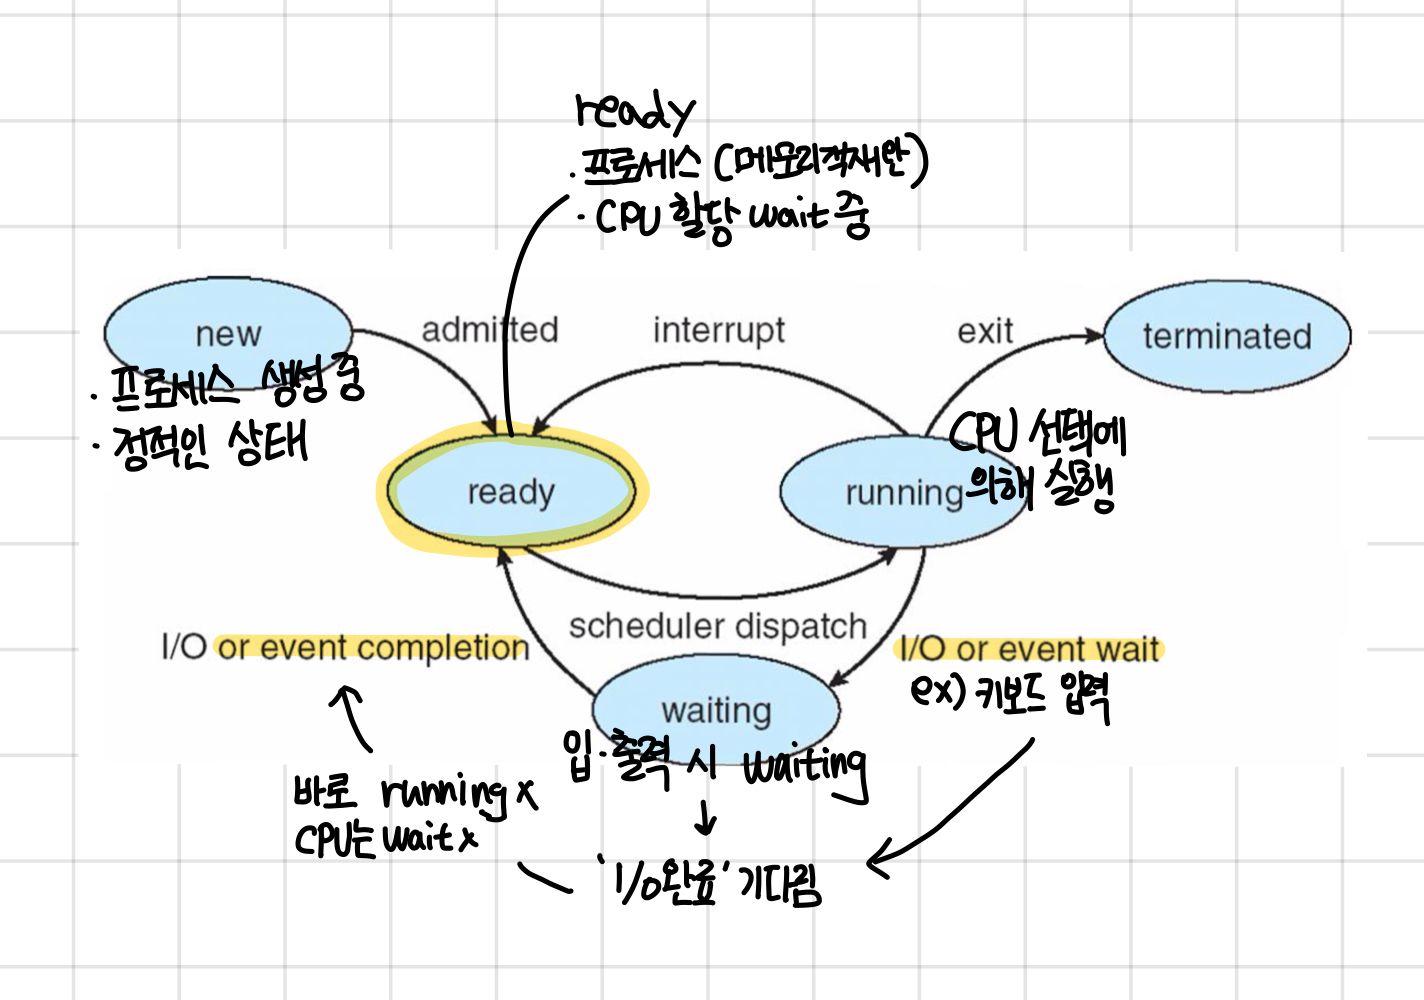 ready
· 프로세스 (메모리적재완)
· CPU 할당 wait 중
new
admitted
interrupt
exit
terminated
· 프로세스 생성 중
· 정적인 상태
ready
running
CPU 선택에
의해 실행
scheduler dispatch
I/O or event completion
I/O or event wait
ex) 키보드 입력
waiting
입·출력 시 waiting
바로 running x
CPU는 wait x
'I/O완료' 기다림